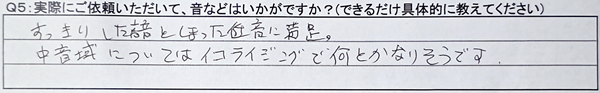 Q5:実際にご依頼いただいて、音などはいかがですか?(できるだけ具体的に教えてください)
すっきりした高音としまった低音に満足。
中音域についてはイコライジングで何とかなりそうです.